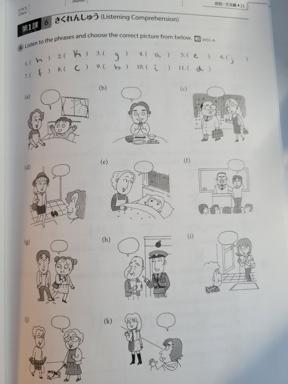 第1課 6 さくれんしゅう (Listening Comprehension)
Listen to the phrases and choose the correct picture from below.
1.( h ) 2.( k ) 3.( g ) 4.( a ) 5.( e ) 6.( j )
7.( f ) 8.( c ) 9.( b ) 10.( i ) 11.( d )
(a) (b) (c)
(d) (e) (f)
(g) (h) (i)
(j) (k)